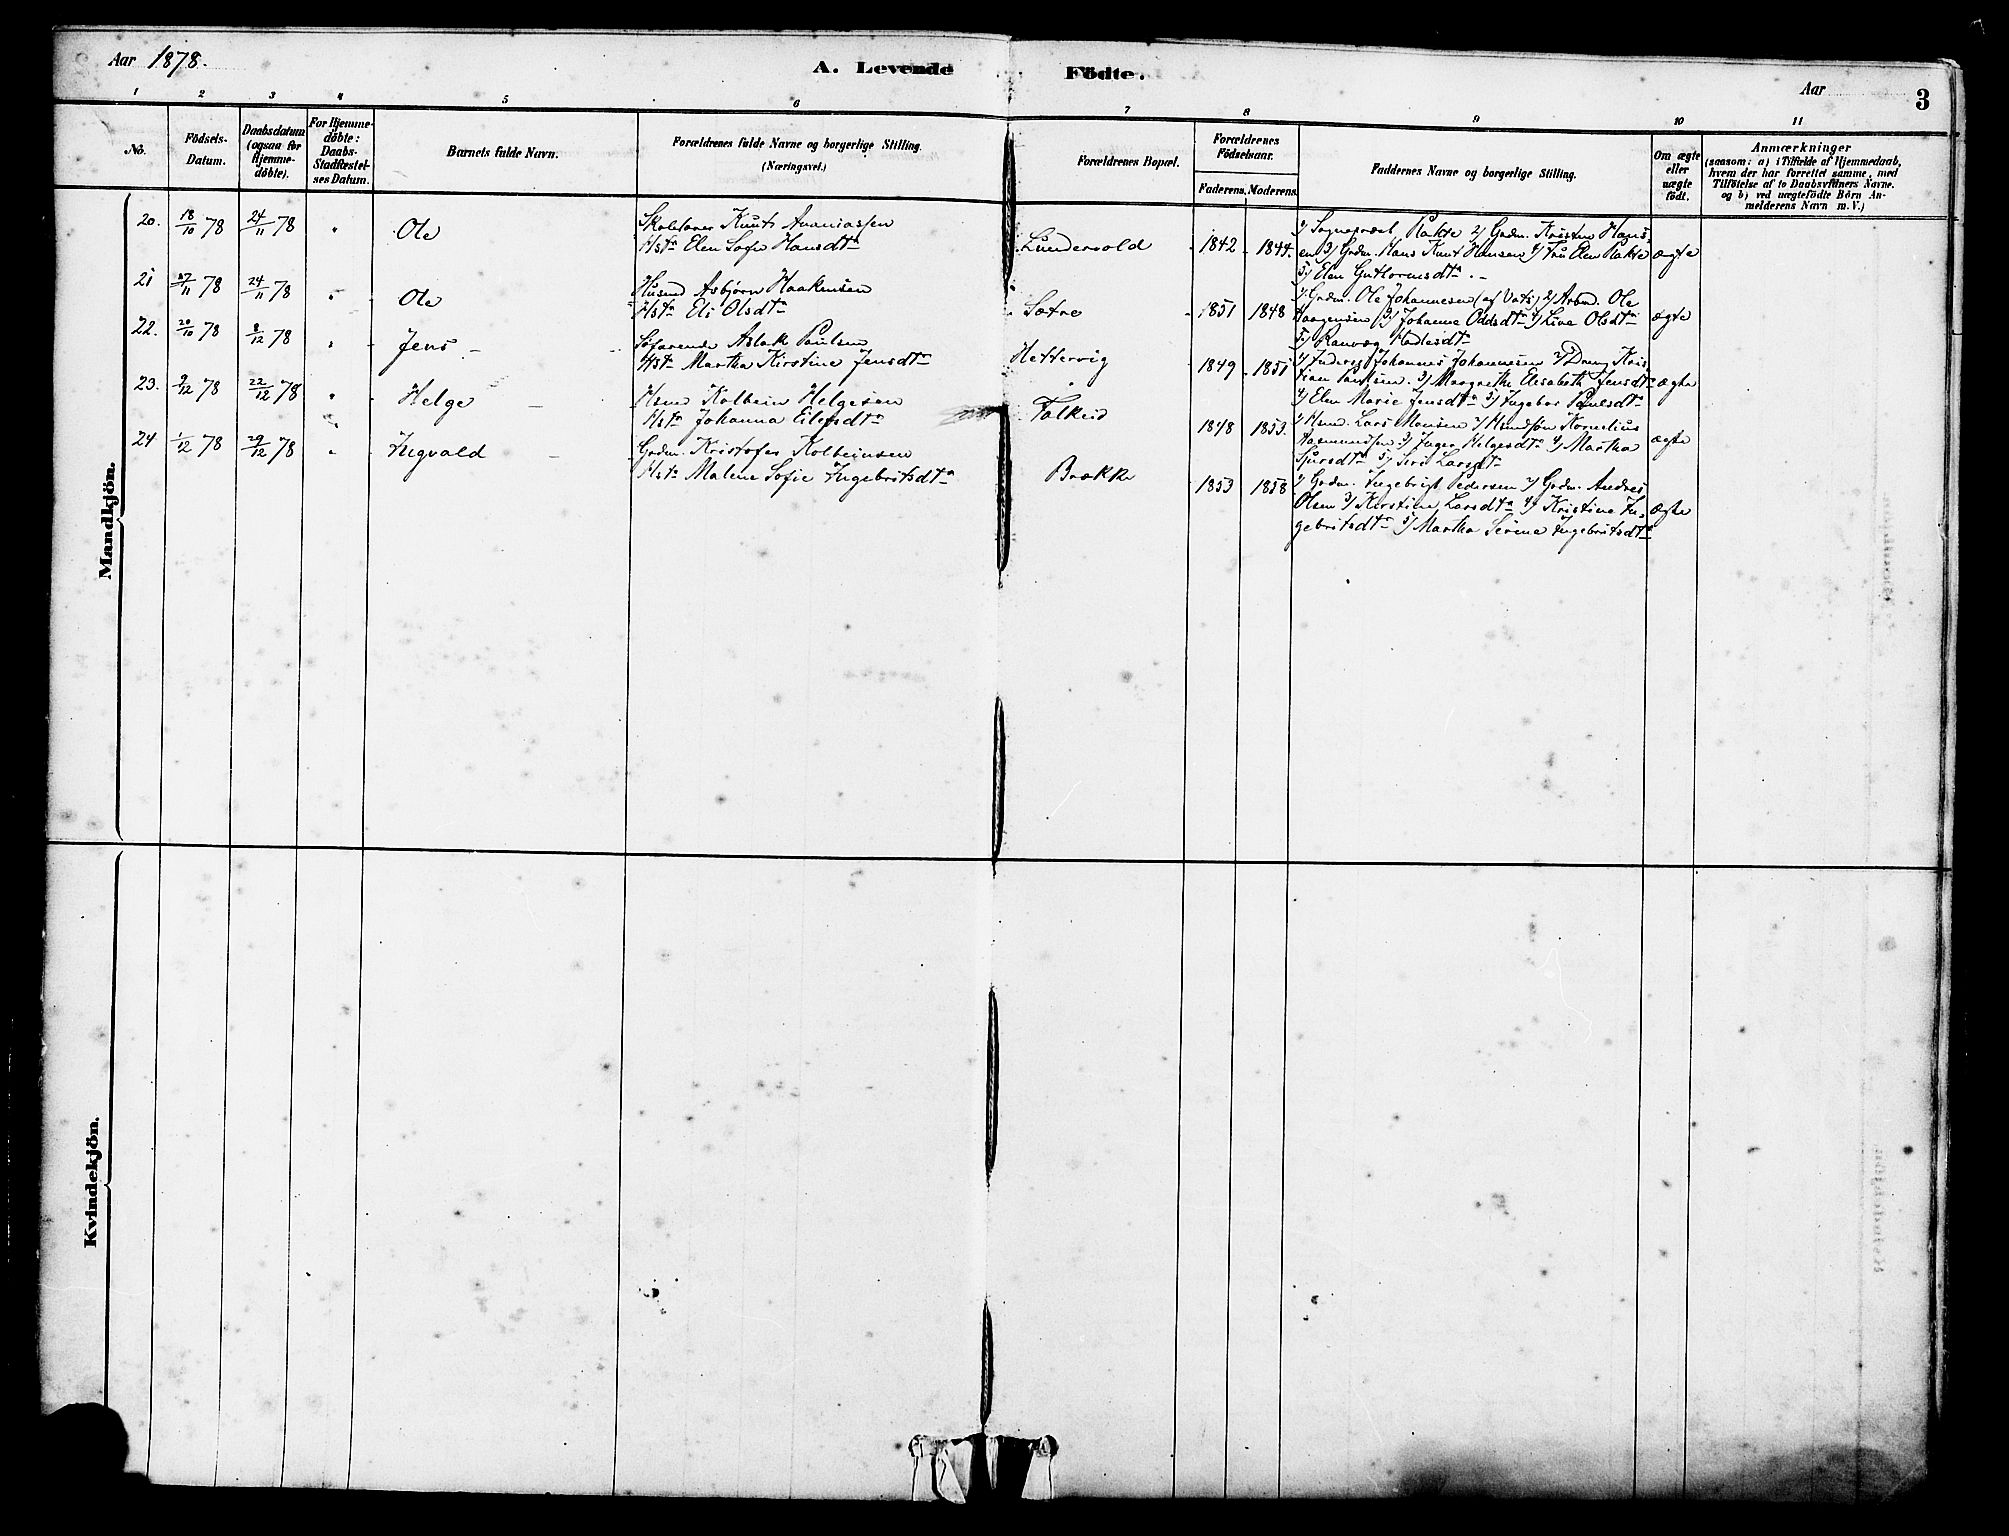 Aar 1878.
A. Levende Födte.
Aar
3
1 2 3 4 5 6 7 8 9 10 11
No.
Födsels-Datum.
Daabsdatum (ogsaa for Hjemme-döbte).
For Hjemme-döbte: Daabs-Stadfæstelses Datum.
Barnets fulde Navn.
Forældrenes fulde Navne og borgerlige Stilling. (Næringsvei.)
Forældrenes Bopæl.
Forældrenes Födselsaar.
Faderens. Moderens.
Faddernes Navne og borgerlige Stilling.
Om ægte eller uægte födt.
Anmærkninger
(saasom: a) i Tilfælde af Hjemmedaab, hvem der har forrettet samme, med Tilföielse af to Daabsvidners Navne. og b) ved uægtefödte Börn Anmelderens Navn m. V.)
Mandkjön.
20. 18/10 78 24/11 78 " Ole
Skolelærer Knut Ananiassen
Hst. Elen Sofie Hansdtr
Lundevold 1842 1844.
1) Sogneprest Rakte 2) Grdm. Kristen Hans-
en 3) Grdm. Hans Knut Hansen 4) Fru Elen Rakte
5) Elen Guttormsdtr.
ægte
21 17/11 78 24/11 78 " Ole
Husmd Asbjørn Haakensen
Hstr Eli Olsdtr
Sætre 1851 1848
1) Grdm. Ole Johannesen (af Vats) 2) Arbm. Ole
Aagensen 3) Johanne Oddsdtr 4) Live Olsdtr
5) Ranveg
ægte
22. 20/10 78 8/12 78 " Jens
Søfarende Aslak Paulsen
Hstr Martha Kirstine Jensdtr
Hettervig 1849 1851
1) Inders Johannes Johannesen 2) Dreng Kris-
tian Paulsen. 3) Margrethe Elisabeth Jensdtr
4) Elen Marie Jensdtr 5) Ingebor Paulsdtr
ægte
23. 9/12 78 22/12 78 " Helge
Hsmd Kolbein Helgesen
Hstr Johanna Eilefsdtr
Falkeid 1848 1853.
1) Hsmd. Lars Monsen 2) Hsmdsøn Kornelius
Aasmundsen 3) Inger Helgesdtr 4) Martha
Sjursdtr 5) Siri Larsdtr
ægte
24 1/12 78 29/12 78 " Ingvald
Grdm. Kristofer Kolbeinsen
Hstr Malene Sofie Ingebritsdtr
Brække 1853 1858
1) Grdm. Ingebrigt Pedersen 2) Grdm. Andres
Olsen 3) Kirstine Larsdtr 4) Kristine In-
gebritsdtr 5) Martha Serine Ingebritsdtr
ægte
Kvindekjön.